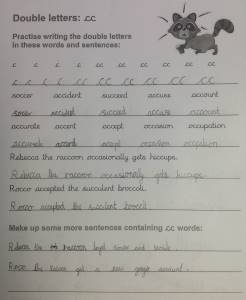 Double letters: cc
Practise writing the double letters
in these words and sentences:
c c c c cc cc cc cc cc cc
c c c c cc cc cc cc cc cc
soccer accident succeed accuse account
soccer accident succeed accuse account
accurate accent accept occasion occupation
accurate accent accept occasion occupation
Rebecca the raccoon occasionally gets hiccups.
Rebecca the raccoon occasionally gets hiccups.
Rocco accepted the succulent broccoli.
Rocco accepted the succulent broccoli.
Make up some more sentences containing cc words:
Rebecca the raccoon and
Rocco the got a new google account.